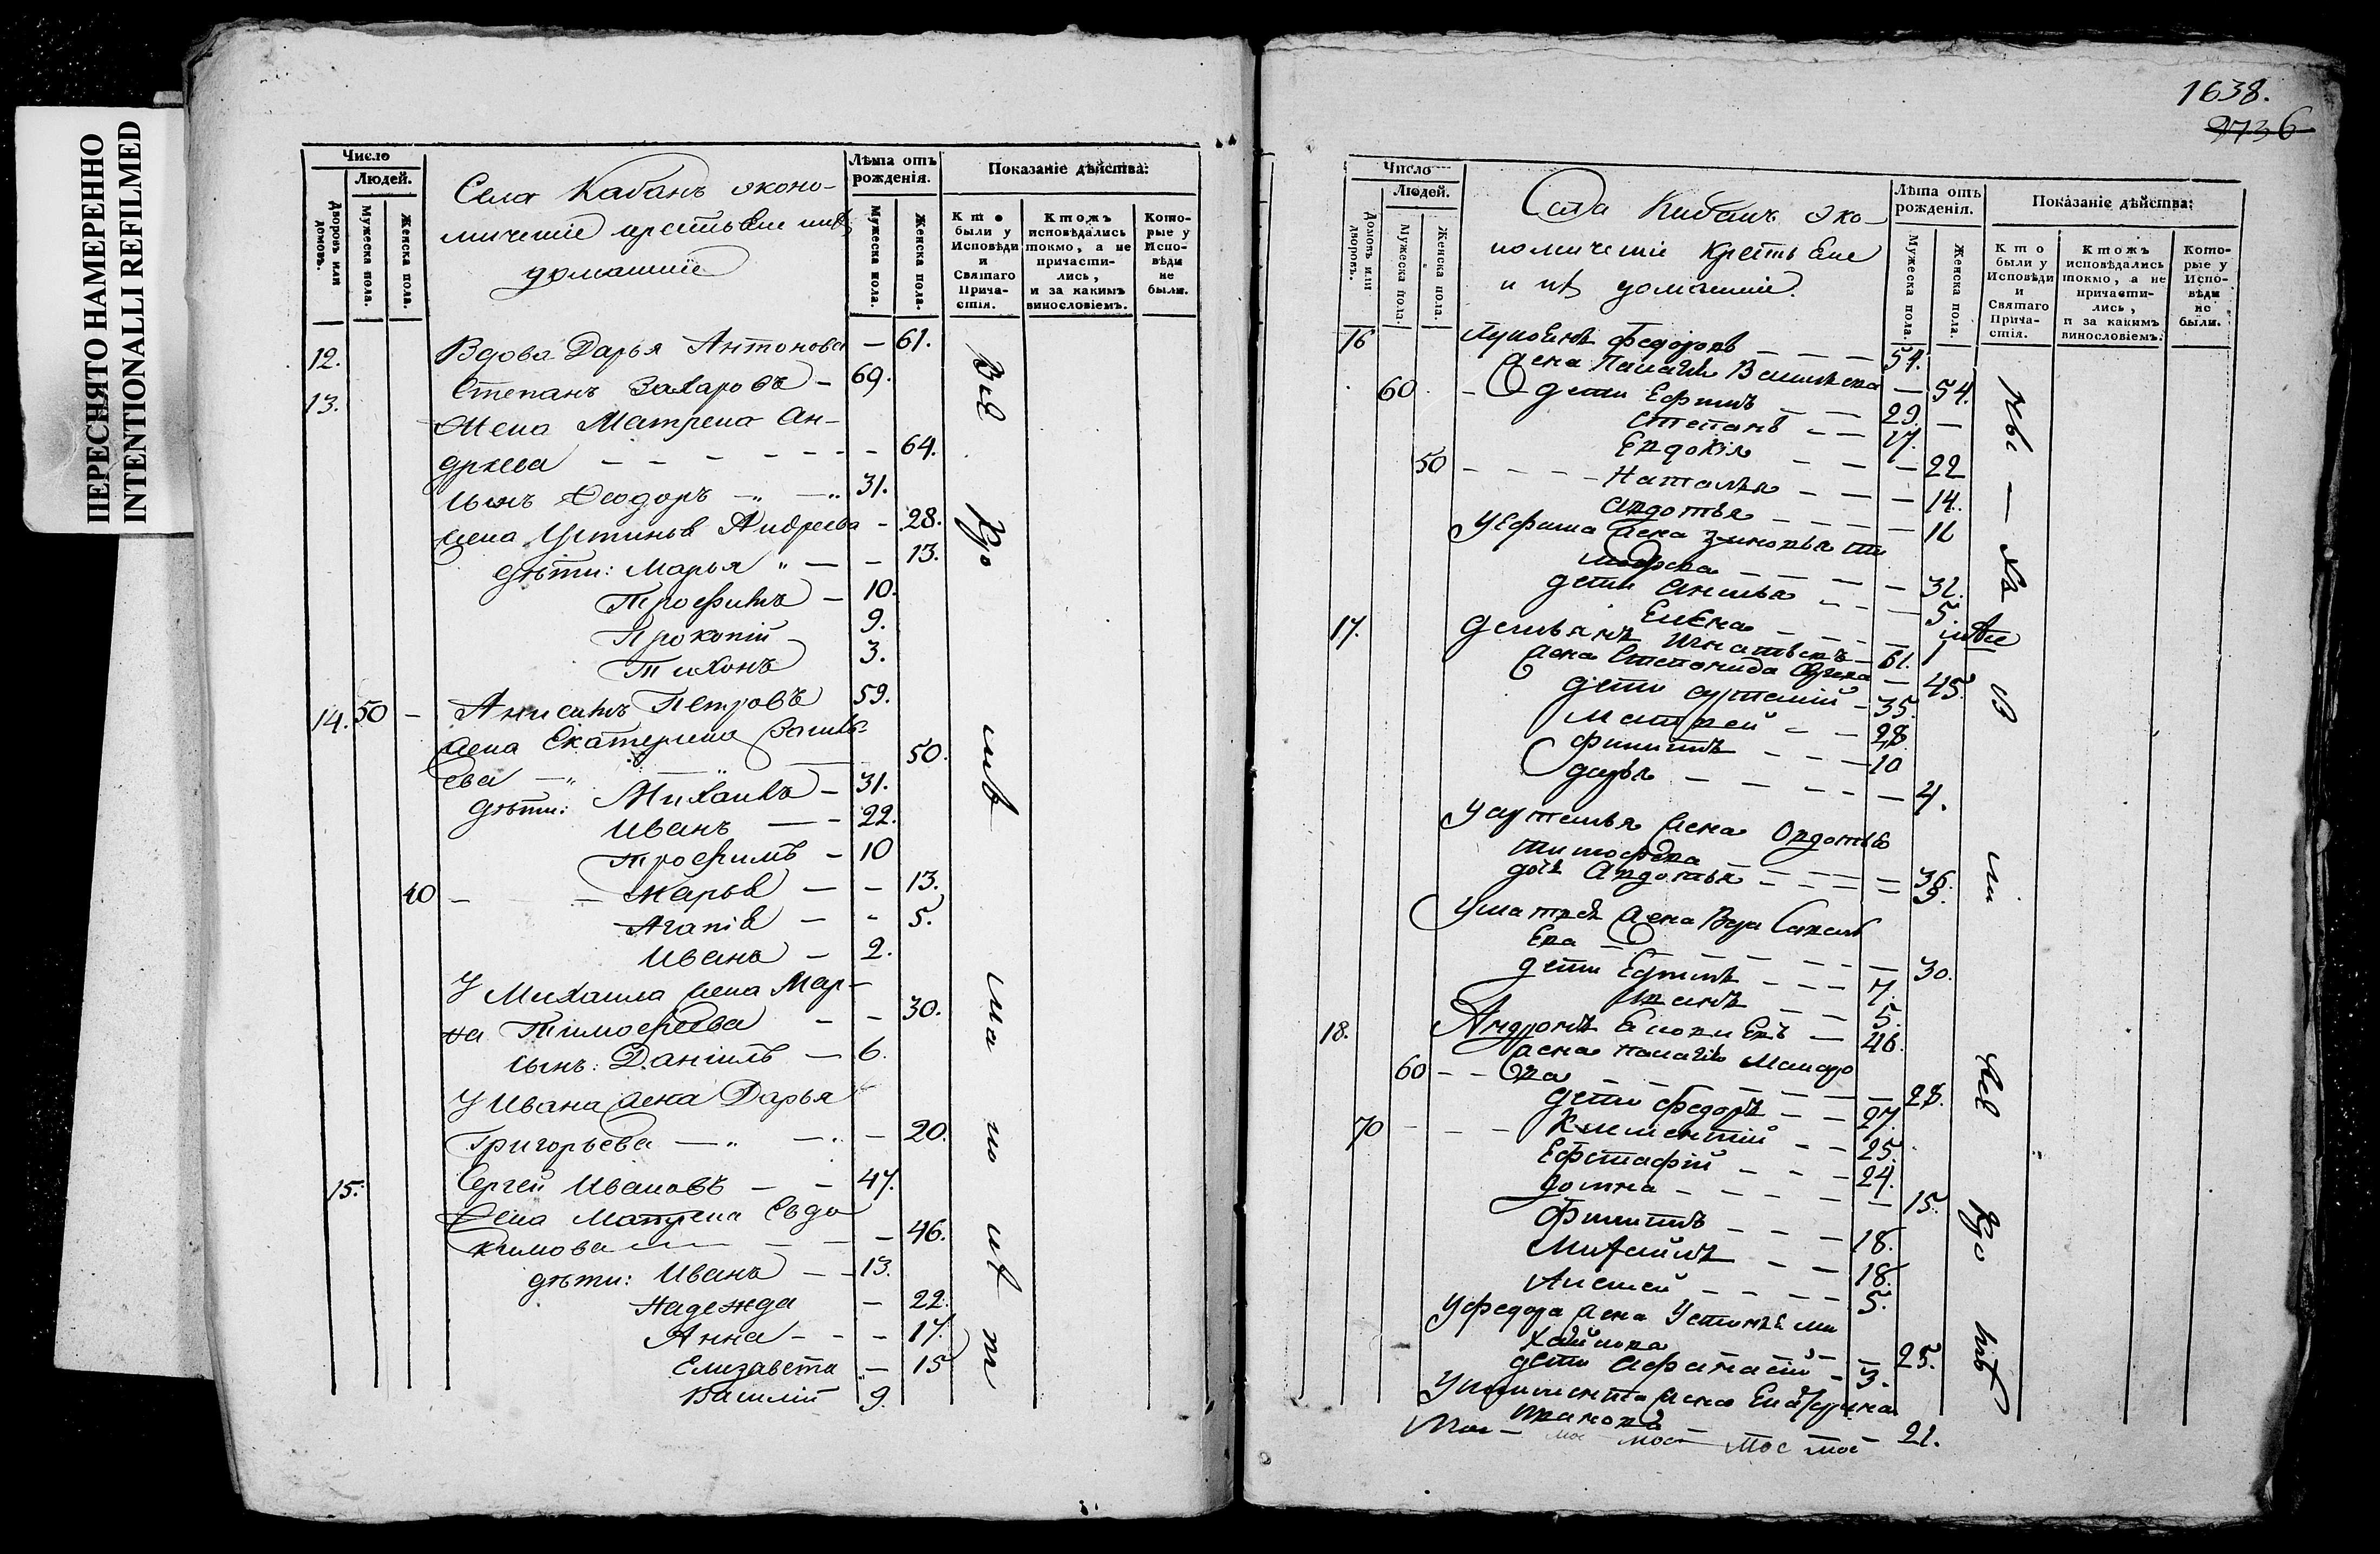 ПЕРЕСНЯТО НАМЕРЕННО
INTENTIONALLI REFILMED
Число
Людей.
Дворовъ или домовъ.
Мужеска пола.
Женска пола.
Села Кабанъ эконо-
мическiе крестьяне
домашнiе
Лѣта отъ рожденiя.
Мужеска пола.
Женска пола.
Показанiе дѣйства:
Кто были у Исповѣди и Святаго Прича-стiя.
Ктожъ исповѣдались токмо, а не причасти-лись, и за какимъ винословiемъ.
Кото-рые у Испо-вѣди не были.
12. Вдова Дарья Антонова — 61.
13. Степанъ Захаровъ — 69.
Жена Матрена Ан-
дреева — — — — — — 64.
сынъ Феодоръ — „ — „ 31.
жена Устинья Андреева - 28.
дѣти: Марья „ — — 13.
Трофимъ — 10.
Прокопiй — 9.
Тихонъ 3.
14. 50 — Анисимъ Петровъ 59.
жена Екатерина Василь-
ева — „ — 50.
дѣти: Михаилъ — 31.
Иванъ — — 22.
Трофимъ — 10
40 — — Марья — — 13.
Агапiя — - 5.
Иванъ — 2.
У Михаила жена Мар-
Тимофеева — — 30.
сынъ: Данiилъ — 6.
У Ивана жена Дарья
Григорьева — „ — „ — 20.
15. Сергей Ивановъ — — 47.
Жена Матрена Евдо
кимова — — — 46.
дѣти: Иванъ — — 13.
Надежда — 22.
Анна - - - 17.
Елизавета — 15
Василiй 9.
1638.
2736
Число
Людей.
Домовъ или дворовъ.
Мужеска пола.
Женска пола.
Села Кабанъ эко-
номическiе крестьяне
и ихъ домашнiе.
Лѣта отъ рожденiя.
Мужеска пола.
Женска пола.
Показанiе дѣйства:
Кто были у Исповѣди и Святаго Прича-стiя.
Ктожъ исповѣдались токмо, а не причасти-лись, и за какимъ винословiемъ.
Кото-рые у Испо-вѣди не были.
16 Федоровъ — — — 54.
жена — 54.
60 - дети Ефимъ — — 29. —
Степанъ — — 17.
Евдокiя — — — 22
50 - - - - Наталья - - - 14.
Авдотья - - - - 11
У Ефима жена Зиновья Ти
мофеева — — — — 32.
дети Анисья - - - 5.
Елена - - - -
17. Демьянъ Игнатьевъ — 61.
жена Степанида — 45.
дети Артемiй - 35.
Матвей - - 28.
Филипъ - - - 10
Дарья — — — — 4.
У Артемья жена Овдотья
Тимофева — — — — 36.
дочь Авдотья - - - - 9.
У Матвея жена Вера Савель
ева — — — — — 30.
дети Ефимъ - - - 7.
Иванъ - - 5.
18. Андронъ — 46.
жена
60 - - ва — — — — — 28.
дети Федоръ - - 27.
70 - - - Климентiй - - 25.
Ефстафiй - - - 24.
Домна - - - - - 15.
Филипъ - - - 18.
Михайлъ - - - 18.
Алексей - - - - 5.
У Федора жена Устинья Ми
хайлова — — 25.
дети Афанасiй - 3.
У Климента жена Екатерина
Иванова — 21.